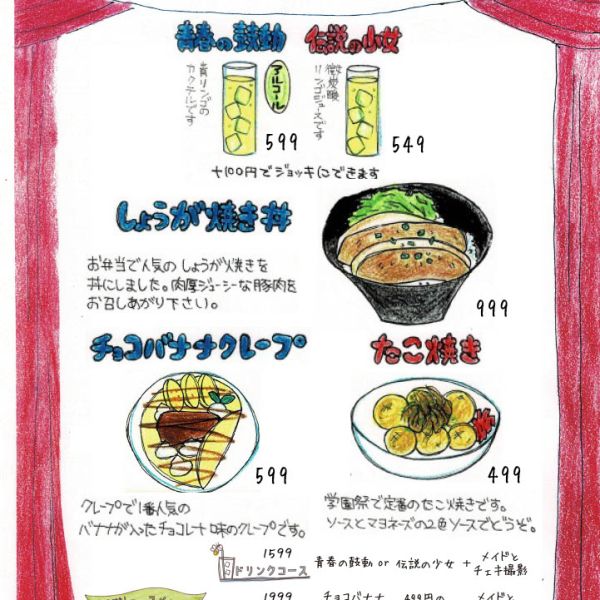 青春の鼓動
伝説の少女
青リンゴの
カクテルです
アルコール
599
微炭酸
リンゴジュースです
549
+100円でジョッキにできます
しょうが焼き丼
お弁当で人気のしょうが焼きを
丼にしました。肉厚ジューシーな豚肉を
お召しあがり下さい。
999
チョコバナナクレープ
599
クレープで1番人気の
バナナが入ったチョコレート味のクレープです。
たこ焼き
499
学園祭で定番のたこ焼きです。
ソースとマヨネーズの2色ソースでどうぞ。
1599
ドリンクコース
青春の鼓動 or 伝説の少女 + メイドと
チェキ撮影
1999
チョコバナナ
499円の
メイドと